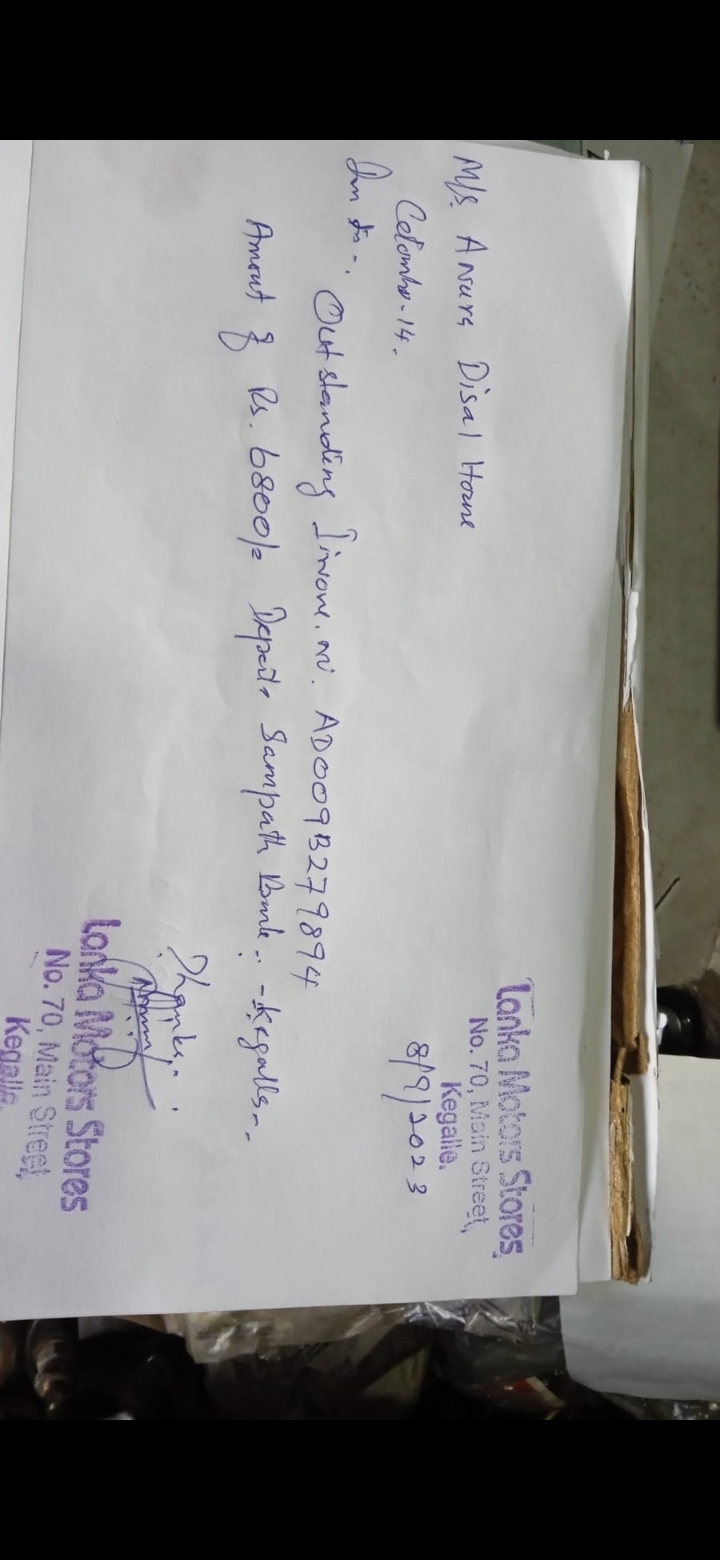 Lanka Motors Stores,
No. 70, Main Street,
Kegalle.
8/9/2023
M/s. Anura Disal House
Colombo-14.
Outstanding Invoice. no. AD009B279894
Amout of Rs. 6800/= Deposite Sampath Bank.. - Kegalle..
Thanks..
Lanka Motors Stores
No. 70, Main Street,
Kegalle.